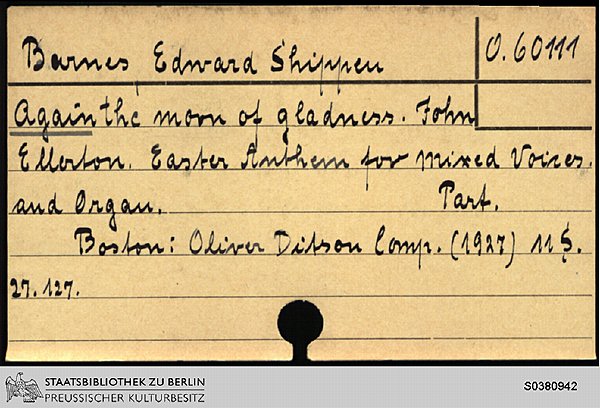 Barnes, Edward Shippen
O. 60111
Again the morn of gladness. John
Ellerton. Easter Anthem for mixed Voices.
and Organ. Part.
Boston: Oliver Ditson Comp. (1927) 11 S.
27. 127.
STAATSBIBLIOTHEK ZU BERLIN
PREUSSISCHER KULTURBESITZ
S0380942